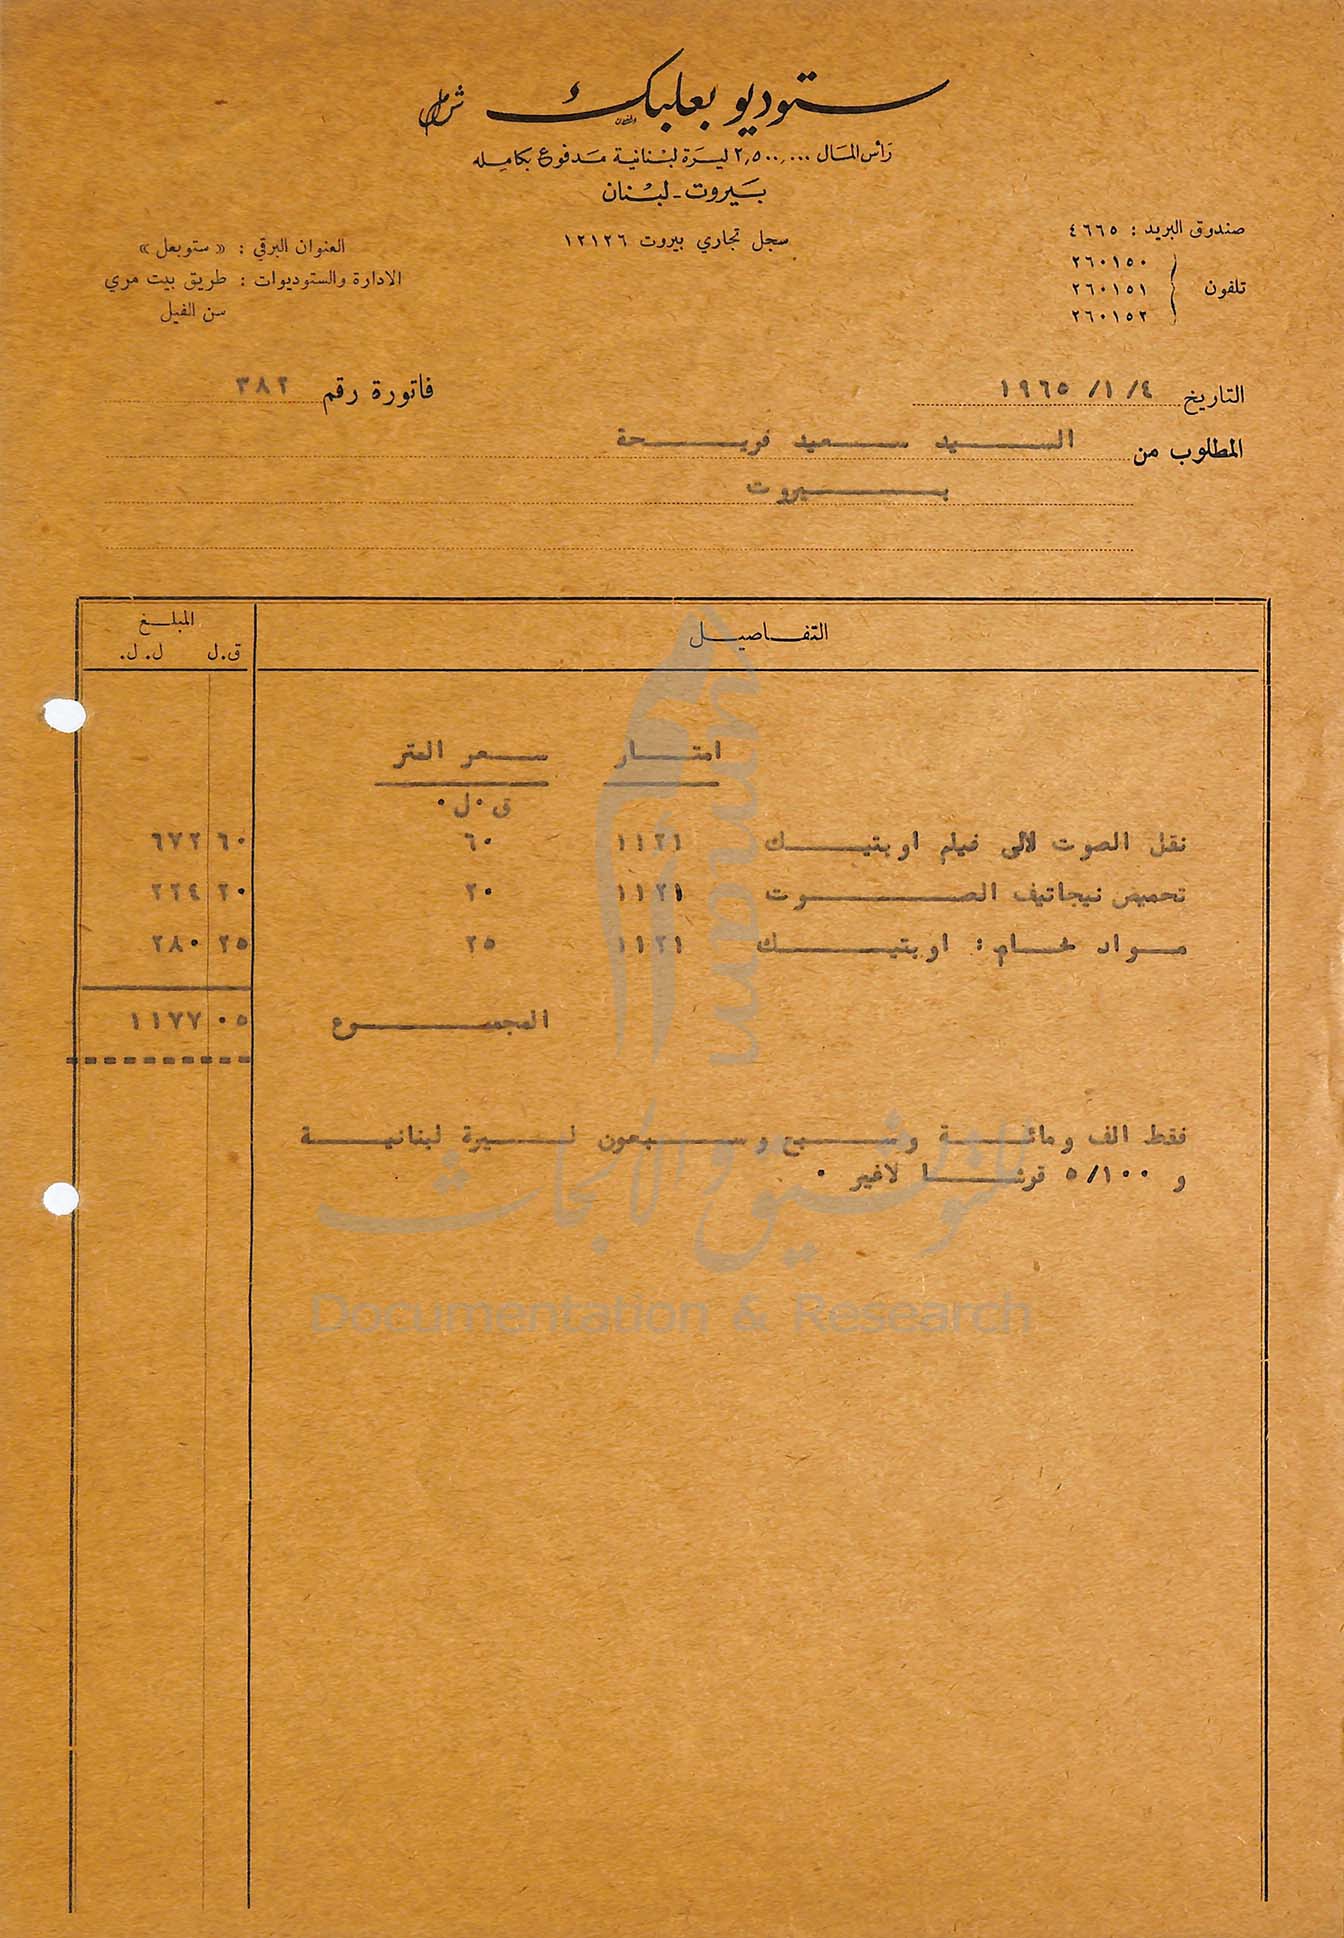 ستوديو بعلبك ش.م.ل
رأس المال ٢,٥٠٠,٠٠٠ ليرة لبنانية مدفوع بكامله
بيروت - لبنان
سجل تجاري بيروت ١٢١٢٦
صندوق البريد : ٤٦٦٥
تلفون
٢٦٠١٥٠
٢٦٠١٥١
٢٦٠١٥٢
العنوان البرقي : « ستوبعل »
الادارة والستوديوات : طريق بيت مري
سن الفيل
التاريخ ٤/ ١/ ١٩٦٥
فاتورة رقم ٣٨٢
المطلوب من السيد سعيد فريحة
بيروت
التفاصيل المبلغ
ق.ل ل.ل.
امتار سعر المتر
ق.ل.
نقل الصوت لالى فيلم اوبتيك ١١٢١ ٦٠ ٦٠ ٦٧٢
تحميض نيجاتيف الصوت ١١٢١ ٢٠ ٢٠ ٢٢٤
مواد خام : اوبتيك ١١٢١ ٢٥ ٢٥ ٢٨٠
المجموع ٠٥ ١١٧٧
فقط الف ومائة وسبع وسبعون ليرة لبنانية
و ٥/١٠٠ قرشا لاغير .
umam
للتوثيق والابحاث
Documentation & Research